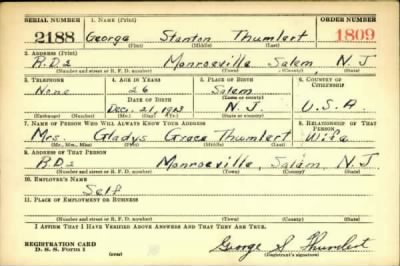 SERIAL NUMBER 1. NAME (Print) ORDER NUMBER
2188 George Stanton Thumlert 1809
(First) (Middle) (Last)
2. ADDRESS (Print)
R.D.2 Monroeville Salem N.J
(Number and street or R. F. D. number) (Town) (County) (State)
3. TELEPHONE 4. AGE IN YEARS 5. PLACE OF BIRTH 6. COUNTRY OF CITIZENSHIP
None 26 Salem
DATE OF BIRTH (Town or county)
Dec. 21, 1913 N.J. U.S.A.
(Exchange) (Number) (Mo.) (Day) (Yr.) (State or country)
7. NAME OF PERSON WHO WILL ALWAYS KNOW YOUR ADDRESS 8. RELATIONSHIP OF THAT PERSON
Mrs. Gladys Grace Thumlert Wife
(Mr., Mrs., Miss) (First) (Middle) (Last)
9. ADDRESS OF THAT PERSON
R.D.2 Monroeville, Salem, N.J
(Number and street or R. F. D. number) (Town) (County) (State)
10. EMPLOYER'S NAME
Self
11. PLACE OF EMPLOYMENT OR BUSINESS
(Number and street or R. F. D. number) (Town) (County) (State)
I AFFIRM THAT I HAVE VERIFIED ABOVE ANSWERS AND THAT THEY ARE TRUE.
REGISTRATION CARD
D. S. S. Form 1 (over) George S Thumlert
(Registrant's signature)